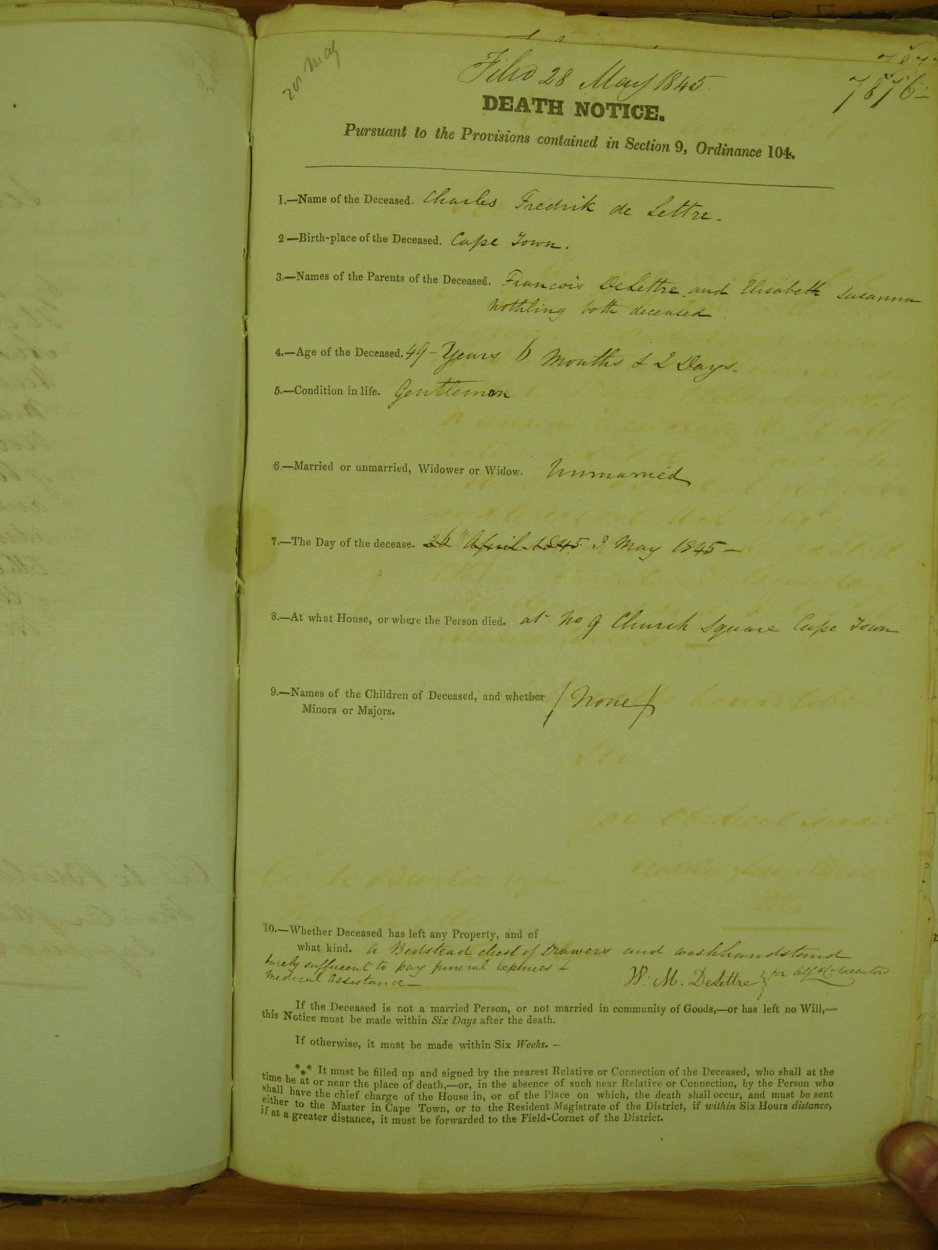 20 May
Filed 28 May 1845
7876
DEATH NOTICE.
Pursuant to the Provisions contained in Section 9, Ordinance 104.
1.—Name of the Deceased. Charles Fredrik de Lettre.
2—Birth-place of the Deceased. Cape Town.
3.—Names of the Parents of the Deceased. Francois DeLettre and Elisabeth Susanna
Nothling both deceased
4.—Age of the Deceased. 49 - Years 6 Months & 2 Days.
5.—Condition in life. Gentleman
6.—Married or unmarried, Widower or Widow. Unmarried
7.—The Day of the decease. 26 April 1845 3 May 1845 —
8.—At what House, or where the Person died. at No 9 Church Square Cape Town
9.—Names of the Children of Deceased, and whether (None)
Minors or Majors.
10.—Whether Deceased has left any Property, and of
what kind. A Bedstead chest of Drawers and washhandstand
barely sufficent to pay funeral expences &
Medical assistance — W. M. DeLettre for
If the Deceased is not a married Person, or not married in community of Goods,—or has left no Will,—
this Notice must be made within Six Days after the death.
If otherwise, it must be made within Six Weeks. —
*** It must be filled up and signed by the nearest Relative or Connection of the Deceased, who shall at the
time be at or near the place of death,—or, in the absence of such near Relative or Connection, by the Person who
shall have the chief charge of the House in, or of the Place on which, the death shall occur, and must be sent
either to the Master in Cape Town, or to the Resident Magistrate of the District, if within Six Hours distance,
if at a greater distance, it must be forwarded to the Field-Cornet of the District.